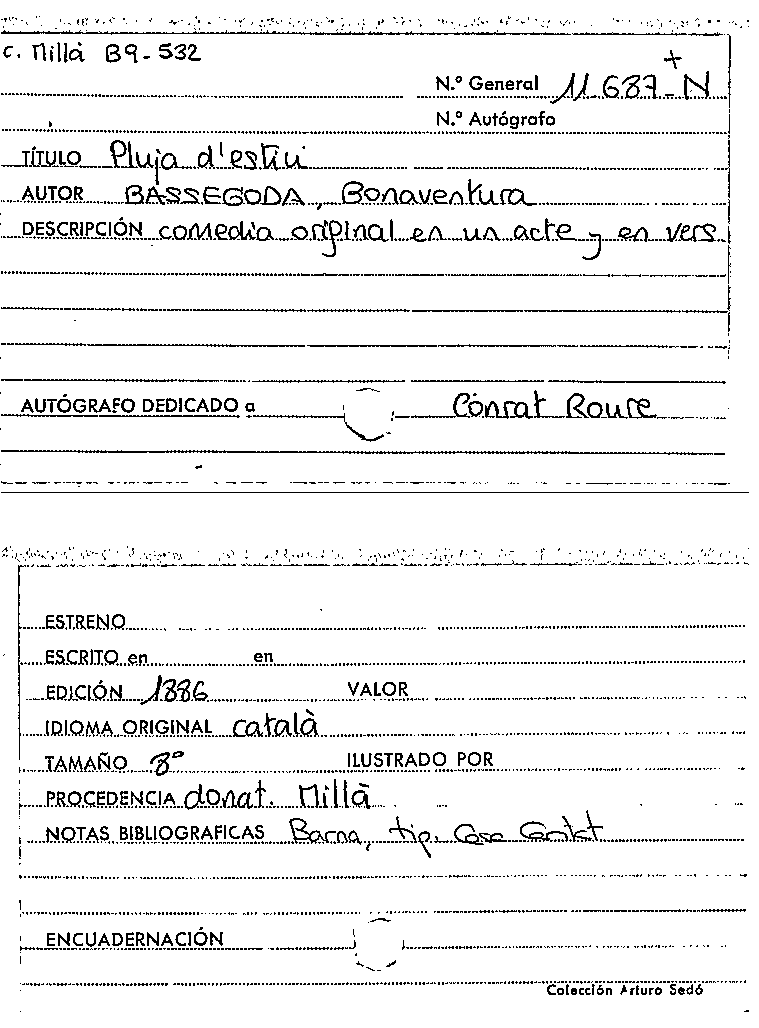 c. Millá B9-532
+
N.º General 11.687-N
N.º Autógrafo
TÍTULO Pluja d'estiu
AUTOR BASSEGODA, Bonaventura
DESCRIPCIÓN comedia original en un acte y en vers
AUTÓGRAFO DEDICADO a Conrat Roure
ESTRENO
ESCRITO en en
EDICIÓN 1886 VALOR
IDIOMA ORIGINAL català
TAMAÑO 8º ILUSTRADO POR
PROCEDENCIA donat. Millà
NOTAS BIBLIOGRAFICAS Barna, tip. Casa
ENCUADERNACIÓN
Colección Arturo Sedó